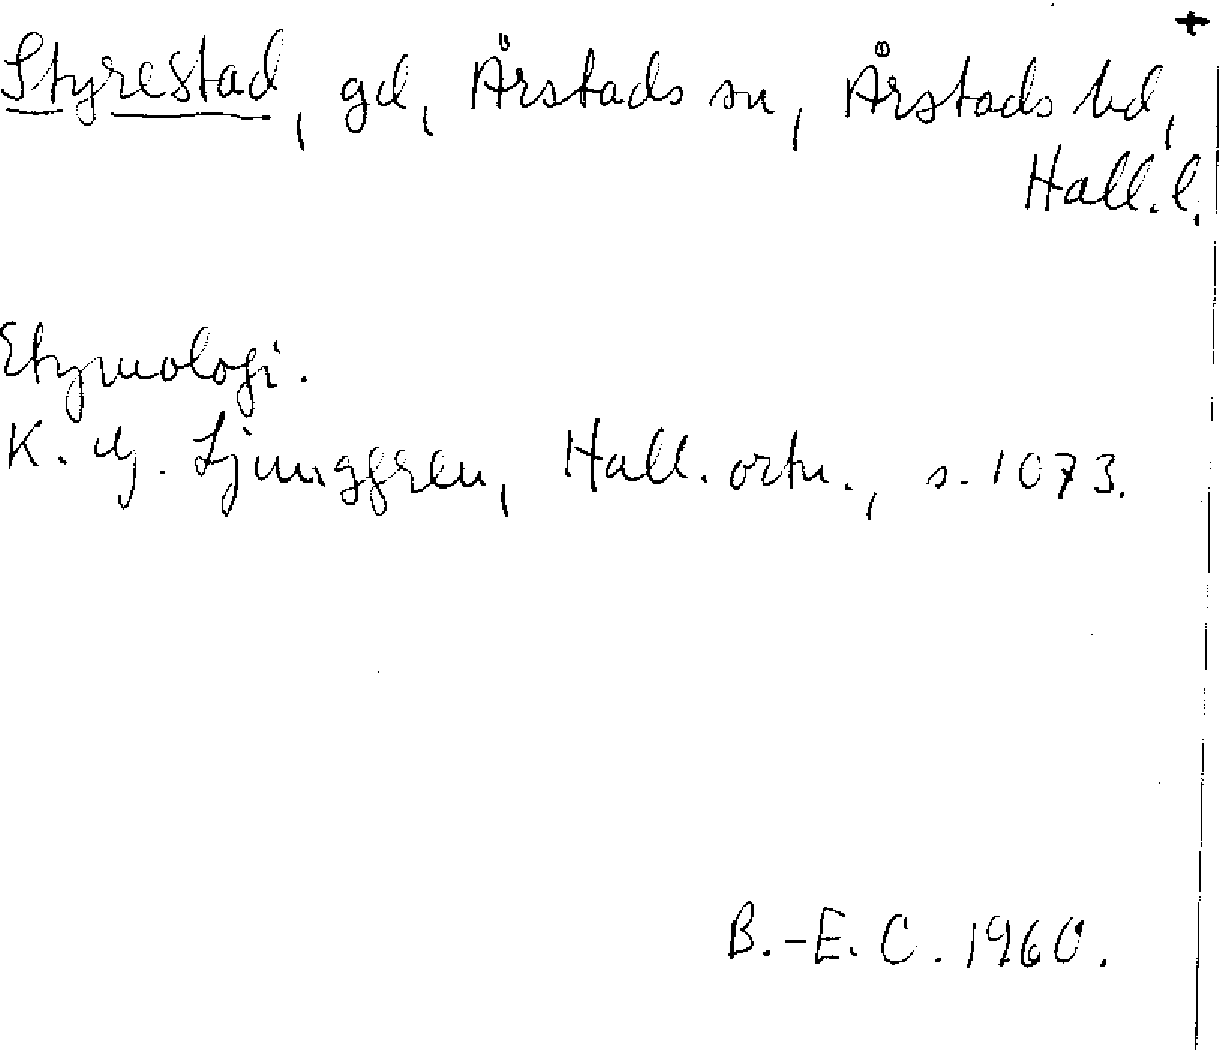 +
Styrestad, gd, Årstads sn, Årstads hd,
Hall.l.
Etymologi.
K. G. Ljunggren, Hall. ortn., s. 1073.
B.-E. C. 1960.